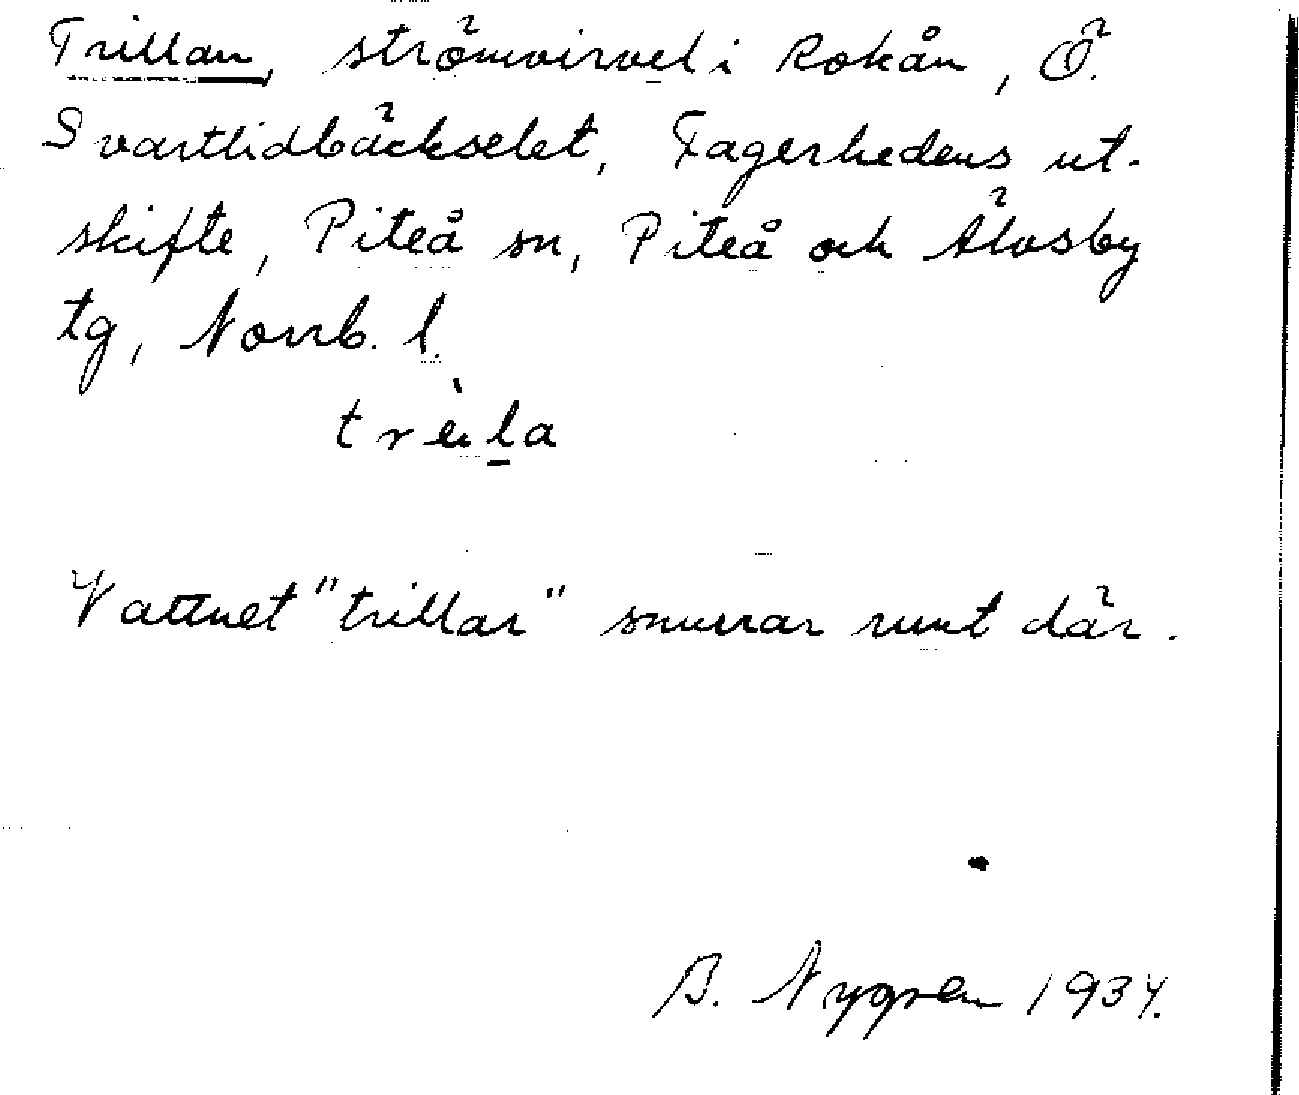 Trillan, strömvirvel i Rokån, Ö.
Svartlidbäckselet, Fagerhedens ut-
skifte, Piteå sn, Piteå och Älvsby
tg, Norrb. l.
Vattnet "trillar" snurrar runt där.
B. Nygren 1934.